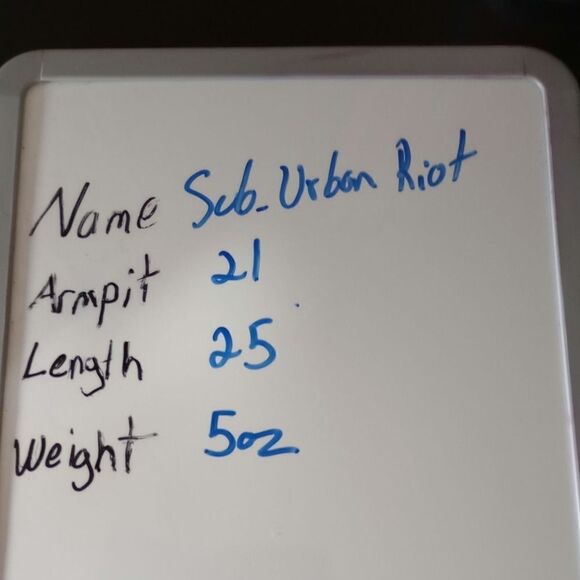 Name Sub-Urban Riot
Armpit 21
Length 25
Weight 5oz